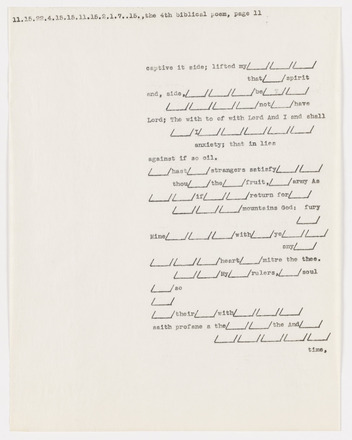 11.15.22.4.15.15.11.15.2.1.7..15.,the 4th biblical poem, page 11
captive it side; lifted my/____//____//____/
that/____/spirit
and, side,/____//____//____/be/____//____/
/____//____//____//____/not/____/have
Lord; The with to of with Lord And I end shall
/____/I/____//____//____//____//____/
anxiety; that in lies
against if so oil.
/____/hast/____/strangers satisfy/____//____/
thou/____/the/____/fruit,/____/army As
/____//____/if/____//____/return for/____/
/____//____//____/mountains God: fury
/____/
Mine/____//____//____/with/____/ye/____//____/
any/____/
/____//____//____//____/heart/____/mitre the thee.
/____//____//____/My/____/rulers,/____/soul
/____/so
/____/
/____/their/____/with/____//____//____/
saith profane a the/____//____/the And/____/
/____//____//____//____//____/
time,